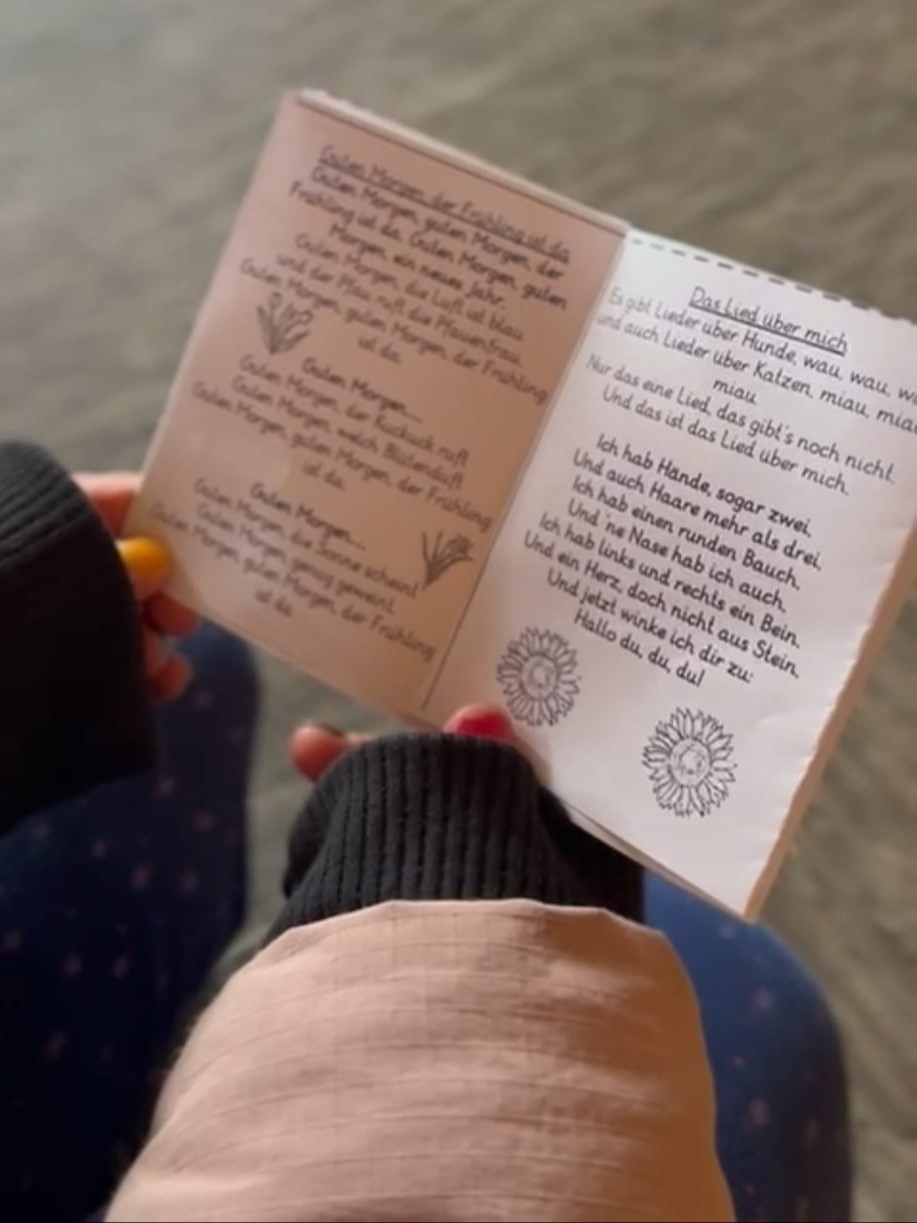 Guten Morgen, der Frühling ist da
Guten Morgen, guten Morgen, der
Frühling ist da. Guten Morgen, guten
Morgen, ein neues Jahr.
Guten Morgen, die Luft ist blau
und der Pfau ruft die Pfauenfrau.
Guten Morgen, guten Morgen, der Frühling
ist da.
Guten Morgen...
Guten Morgen, der Kuckuck ruft
Guten Morgen, welch Blütenduft
Guten Morgen, guten Morgen, der Frühling
ist da.
Guten Morgen...
Guten Morgen, die Sonne scheint
Guten Morgen, genug geweint.
Guten Morgen, guten Morgen, der Frühling
ist da.
Das Lied über mich
Es gibt Lieder über Hunde, wau, wau,
und auch Lieder über Katzen, miau,
miau.
Nur das eine Lied, das gibt's noch nicht.
Und das ist das Lied über mich.
Ich hab Hände, sogar zwei,
Und auch Haare mehr als drei.
Ich hab einen runden Bauch,
Und 'ne Nase hab ich auch.
Ich hab links und rechts ein Bein,
Und ein Herz, doch nicht aus Stein.
Und jetzt winke ich dir zu:
Hallo du, du, du!